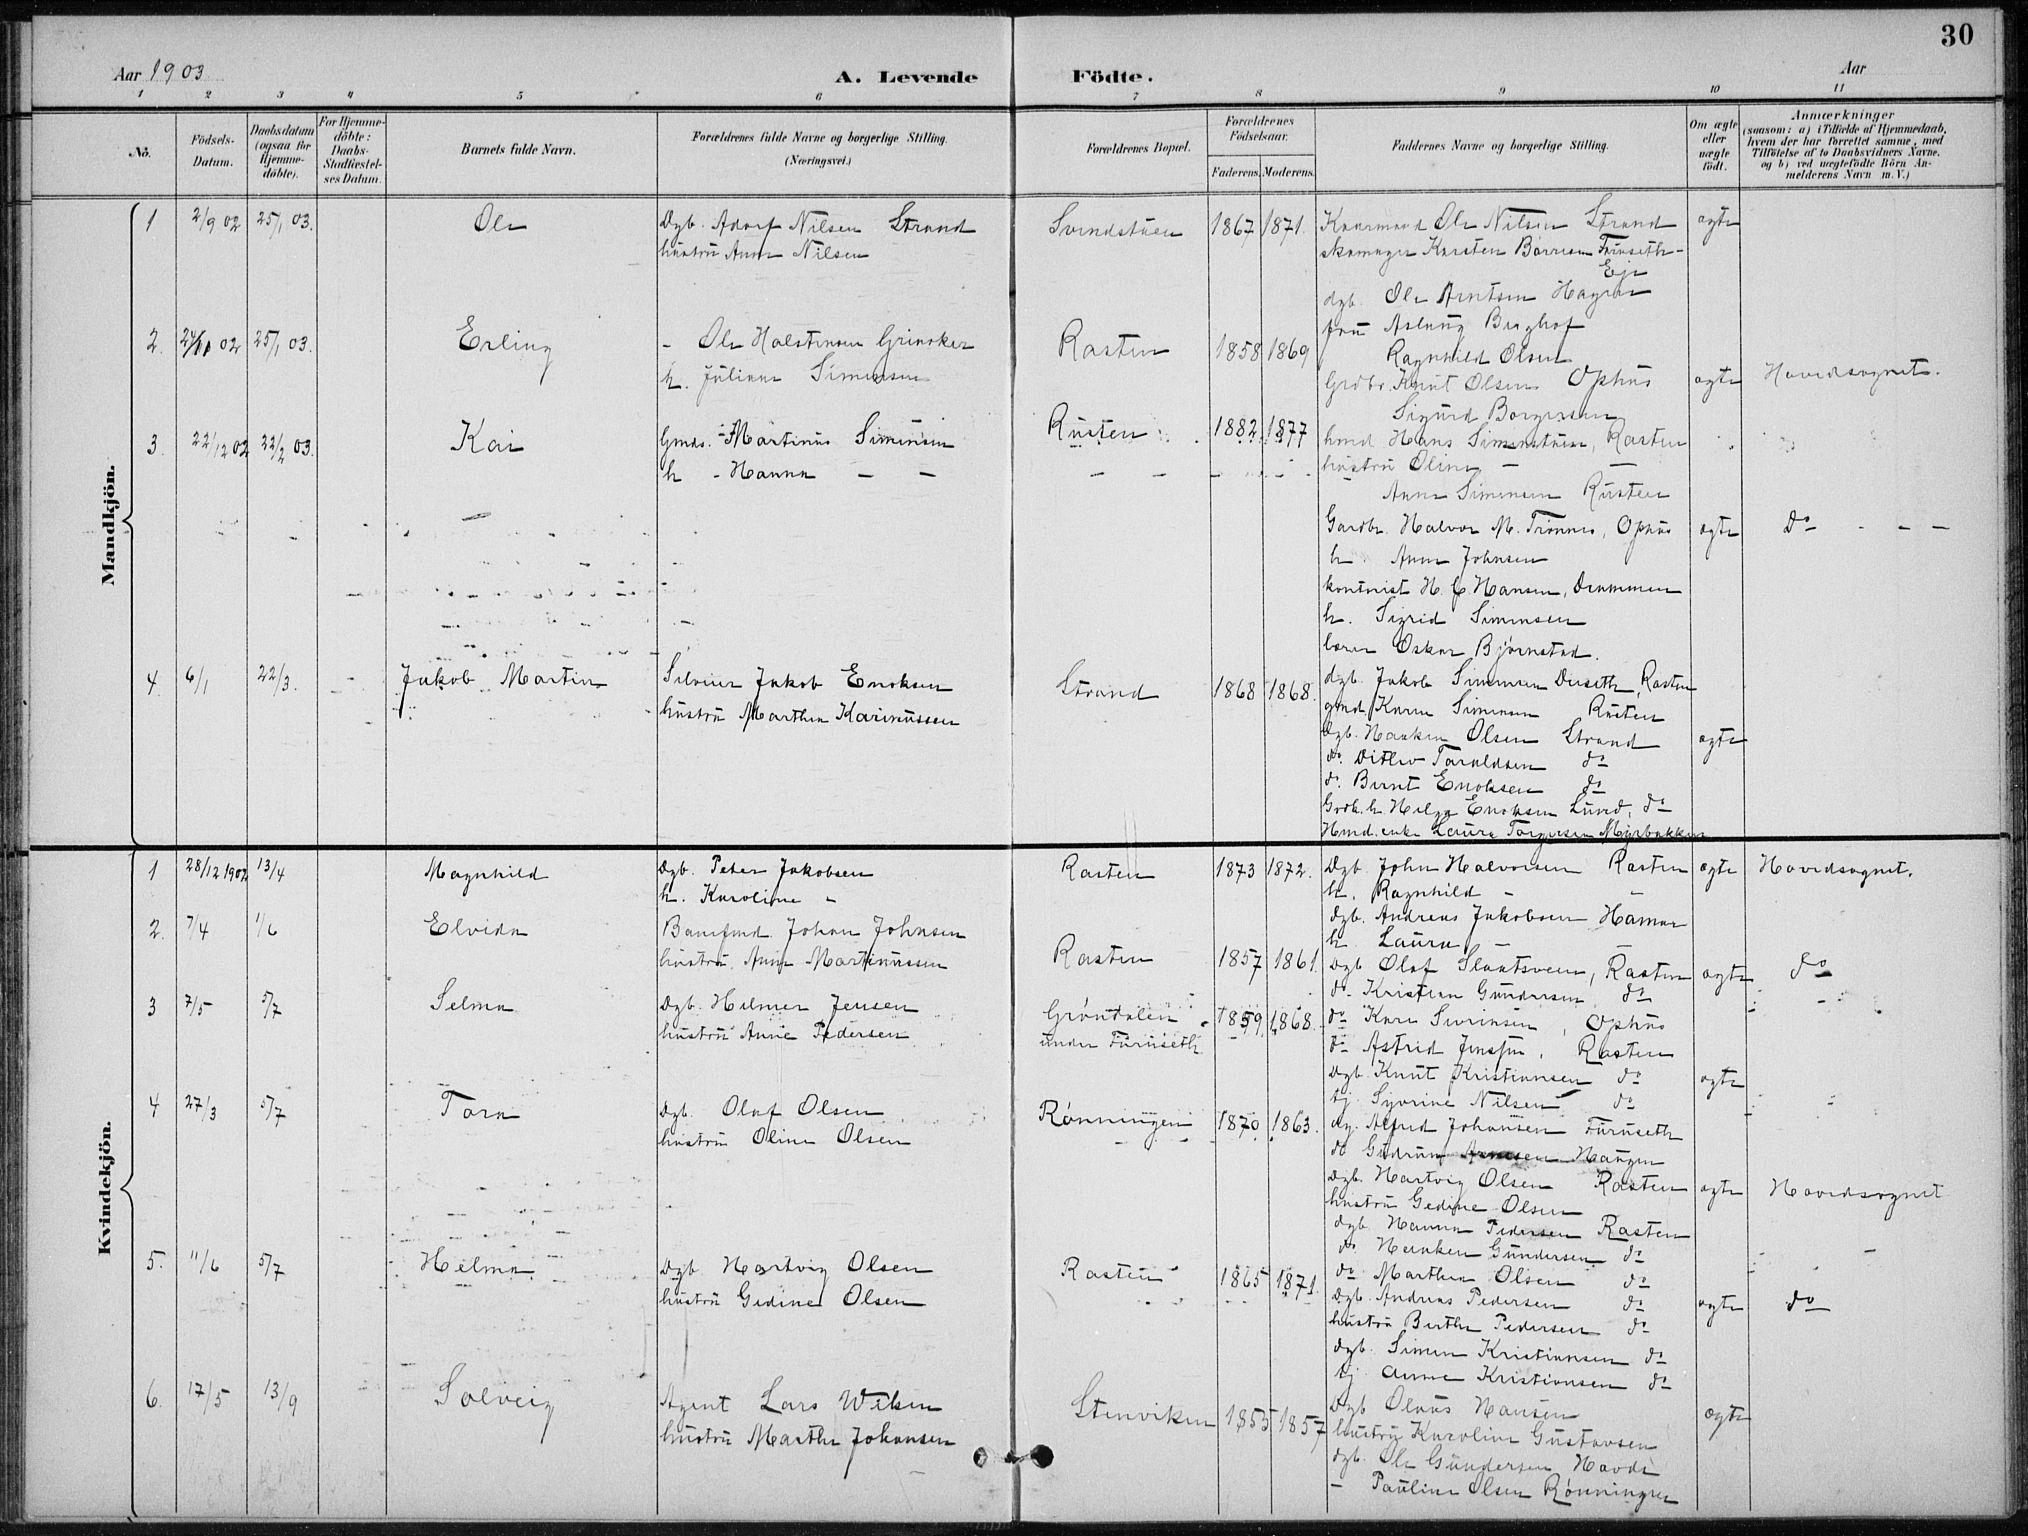 30
Aar 1903
A. Levende Födte.
Aar
1 2 3 4 5 6 7 8 9 10 11
Nô.
Födsels-Datum.
Daabsdatum (ogsaa for Hjemme-döbte).
For Hjemme-döbte: Daabs-Stadfæstel-ses Datum.
Barnets fulde Navn.
Forældrenes fulde Navne og borgerlige Stilling. (Næringsvei.)
Forældrenes Bopæl.
Forældrenes Födselsaar.
Faderens. Moderens.
Faddernes Navne og borgerlige Stilling.
Om ægte eller uægte födt.
Anmærkninger
(saasom: a) i Tilfælde af Hjemmedaab,
hvem der har forrettet samme, med
Tilföielse af to Daabsvidners Navne,
og b) ved uægtefödte Börn An-
melderens Navn m. V.)
Mandkjön.
1 2/9 02 25/1 03. Ole Dgb. Adorf Nilsen Strand Svendstuen 1867 1871. Kaarmand Ole Nilsen Strand ægte
hustru Anna Nilsen skomager Karsten Borresen Furuseth-
Eje
dgb. Ole Arntsen Hagen
fru Aslaug Berghof
2. 25/1 03. Erling - Ole Halstensen Grinaker Rasten 1858 1869 Ragnhild Olsen
h. Juliane Simensen Grdbr. Knut Olsen Ophus ægte Hovedsognet.
Sigurd Borgersen
3. 22/12 02 22/2 03. Kai Gmds. Martinus Simensen Rusten 1882 1877 hmd Hans Simenstuen, Rasten
h - Hanna - - hustru Oline - -
Anna Simensen Rusten
Gardbr. Halvor M. Trönnes, Ophus ægte do - -
h. Anne Johnsen
kontorist H. C. Hansen, Drammen
h. Sigrid Simensen
lærer Oskar Björnstad.
4. 6/1 22/3. Jakob Martin Jakob Enoksen Strand 1868 1868. dgb. Jakob Simensen Rasten
hustru Marthea gmd Karen Simensen Rusten
Dgb. Haaken Olsen Strand ægte
do. Ditlev Taraldsen do
do. Bernt Enoksen do
Grdb. h Helga Enoksen Lund, do
Hmd. enke Laura Torgersen Myrbakken
Kvindekjön.
1 28/12 1902 13/4 Magnhild Dgb. Peter Jakobsen Rasten 1873 1872. Dgb. John Halvorsen Rasten ægte Hovedsognet.
h. Karoline - h. Ragnhild - -
dgb. Andreas Jakobsen Hamar
2. 7/4 1/6 Elvida Johan Johnsen h Laura - -
hustru Anne Martinussen Rasten 1857 1861. Dgb Olaf Slaatsveen, Rasten ægte do
do. Kristian Gundersen do
3 7/5 5/7 Selma Dgb. Hilmer Jensen Gröndalen 1859 1868. do Kari Simensen, Ophus
hustru Anne Pedersen under Furuseth do Astrid Jensen, Rasten
Dgb. Knut Kristiansen do ægte
tj Syverine Nilsen do
4 27/3 5/7 Tora Dgb. Olaf Olsen Rönningen 1870 1863. dg. Alfred Johansen Furuseth
hustru Oline Olsen do Gudrun Haugen
Dgb. Hartvig Olsen Rasten ægte Hovedsognet
hustru Gedine Olsen
dgb. Hanna Pedersen Rasten
do Haaken Gundersen do
5. 11/6 5/7 Helma Dgb Hartvig Olsen Rasten 1865 1871. do Marthea Olsen do
hustru Gedine Olsen Dgb. Andreas Pedersen do ægte do
hustru Berthe Pedersen do
dgb. Simen Kristiansen do
tj Anne Kristiansen do
6. 17/5 13/9 Solveig Agent Lars Wilsen Stenviken 1855 1857 Dgb Olaus Hansen ægte
hustru Marthe Johansen hustru Karoline Gustavsen
dgb. Ole Gundersen Hovde
- Pauline Olsen Rönningen